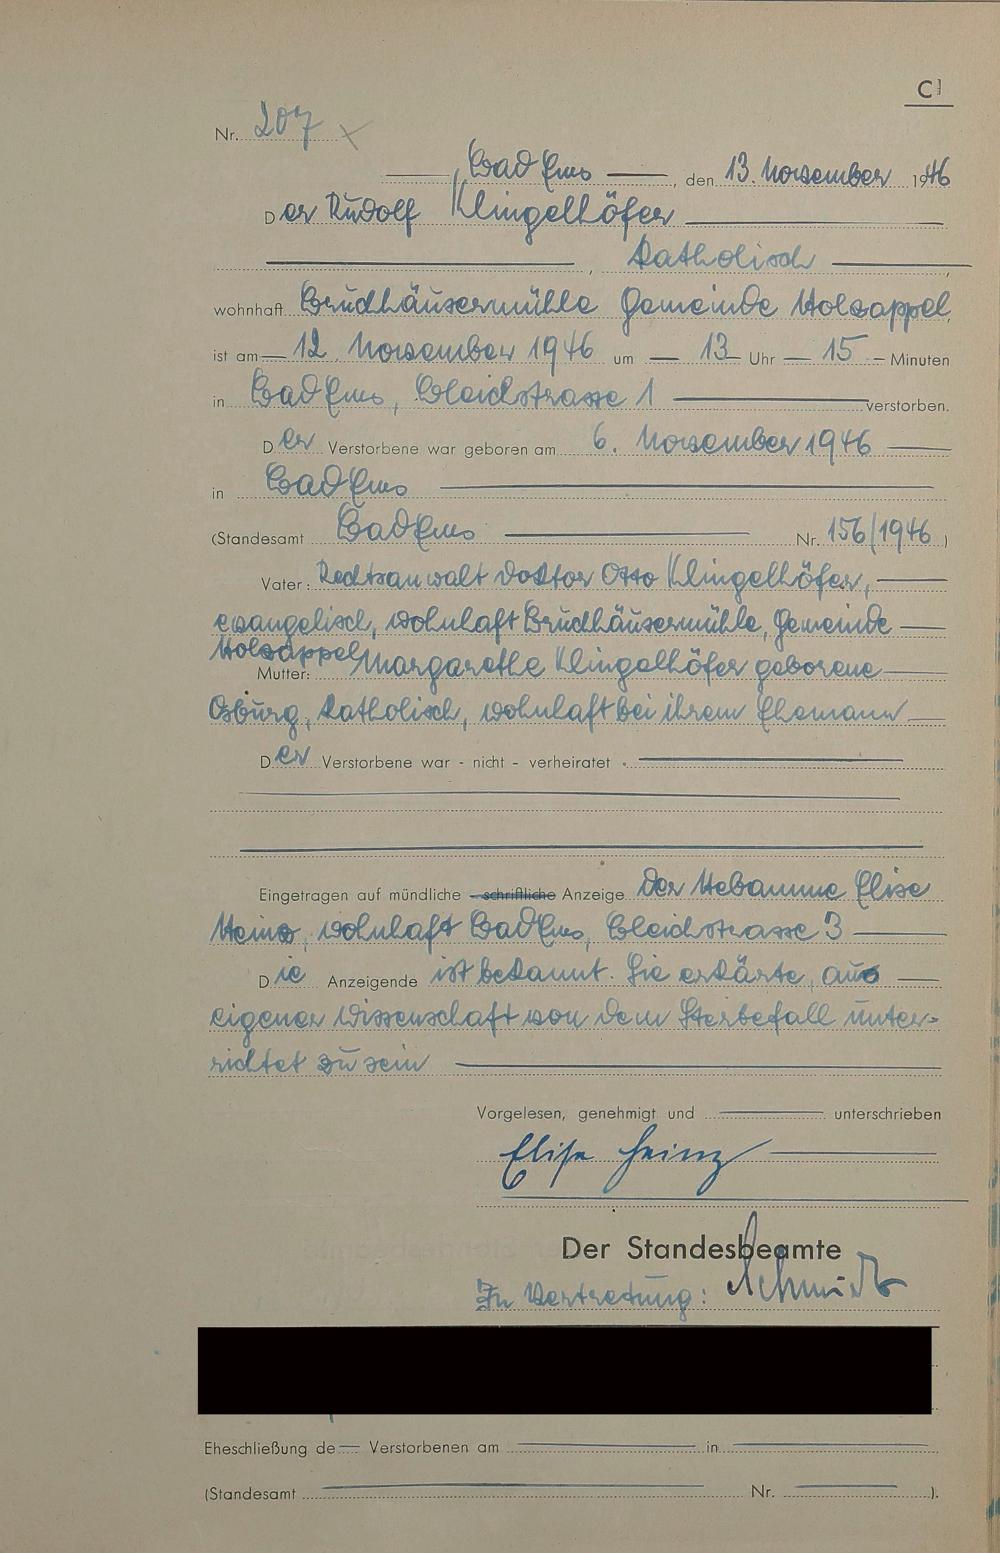 C1
Nr. 207
Bad Ems, den 13. November 1946
Der Rudolf Klingelhöfer
, katholisch,
wohnhaft Bruchhäusermühle Gemeinde Holzappel,
ist am 12. November 1946 um 13 Uhr 15 Minuten
in Bad Ems, Bleichstrasse 1 verstorben.
Der Verstorbene war geboren am 6. November 1946
in Bad Ems
(Standesamt Bad Ems Nr. 156/1946)
Vater: Rechtsanwalt Doktor Otto Klingelhöfer,
evangelisch, wohnhaft Bruchhäusermühle, Gemeinde
Holzappel
Mutter: Margarethe Klingelhöfer geborene
Osburg, katholisch, wohnhaft bei ihrem Ehemann
Der Verstorbene war - nicht - verheiratet .
Eingetragen auf mündliche - schriftliche Anzeige der Hebamme Elise
Heinz, wohnhaft Bad Ems, Bleichstrasse 3
Die Anzeigende ist bekannt. Sie erkärte, aus
eigener Wissenschaft von dem Sterbefall unter-
richtet zu sein
Vorgelesen, genehmigt und unterschrieben
Elise Heinz
Der Standesbeamte
In Vertretung: Schmidt
Eheschließung de Verstorbenen am in
(Standesamt Nr. ).